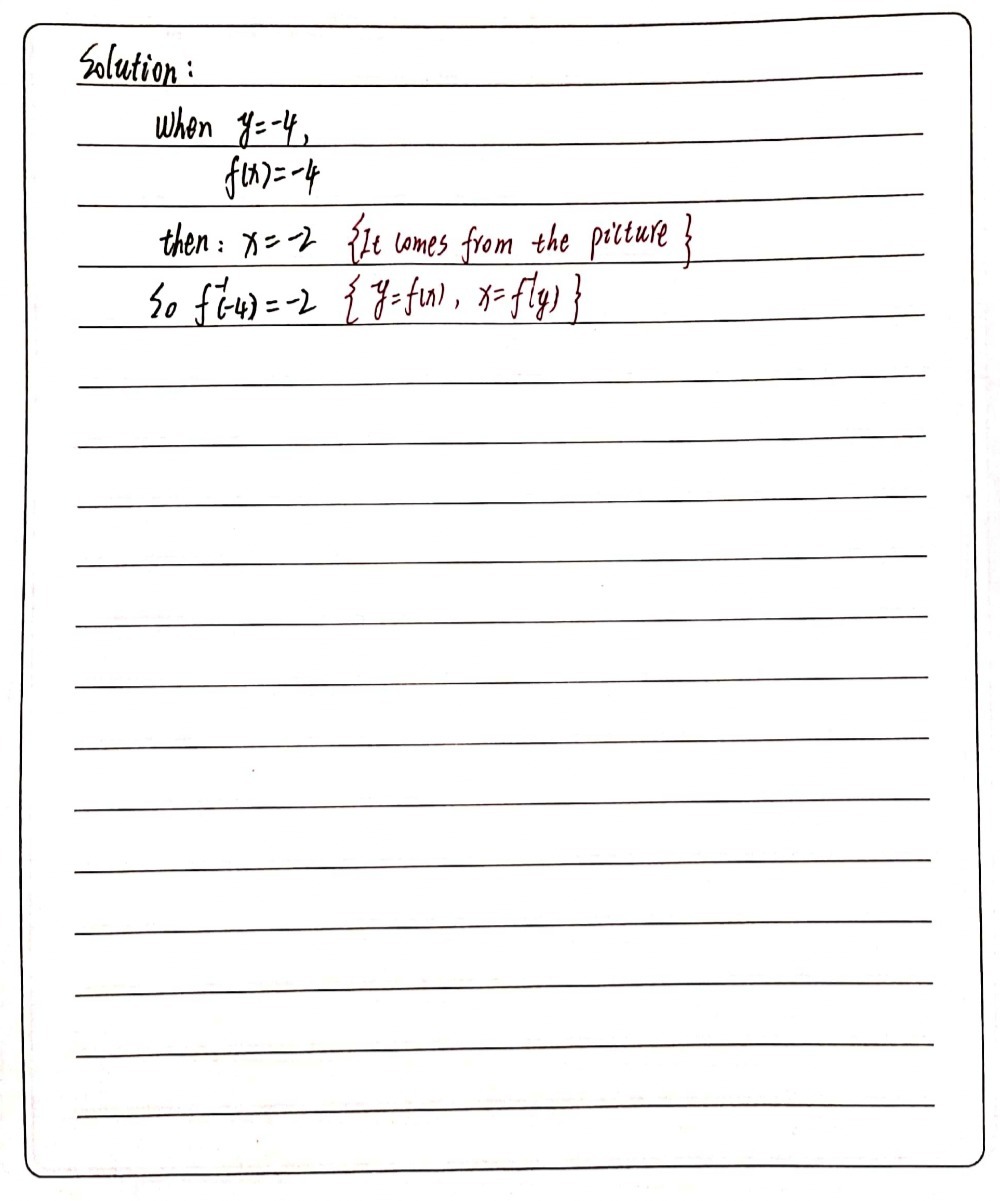 Solution:
When y=-4,
f(x)=-4
then: x=-2 {It comes from the picture}
So f⁻¹(-4)=-2 {y=f(x), x=f⁻¹(y)}